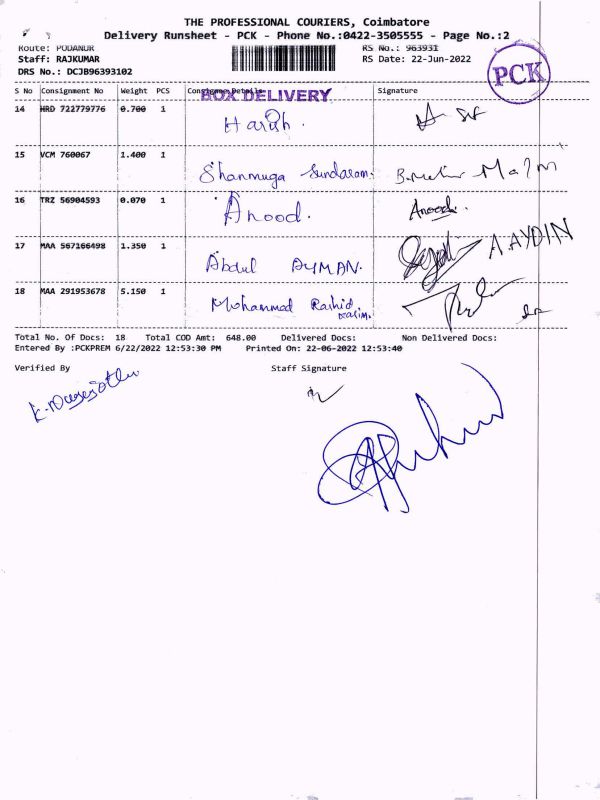 THE PROFESSIONAL COURIERS, Coimbatore
Delivery Runsheet - PCK - Phone No.:0422-3505555 - Page No.:2
Route: PODANUR
RS No.: 963931
Staff: RAJKUMAR
RS Date: 22-Jun-2022
DRS No.: DCJB96393102
PCK
S No Consignment No Weight PCS Consignee Details Signature
BOX DELIVERY
14 HRD 722779776 0.700 1 Harish.
15 VCM 760067 1.400 1 Shanmuga Sundaram.
16 TRZ 56904593 0.070 1 Anood. Anood.
17 MAA 567166498 1.350 1 Abdul AYMAN. A.AYDIN
18 MAA 291953678 5.150 1 Mohammed Rashid
Total No. Of Docs: 18 Total COD Amt: 648.00 Delivered Docs: Non Delivered Docs:
Entered By :PCKPREM 6/22/2022 12:53:30 PM Printed On: 22-06-2022 12:53:40
Verified By Staff Signature